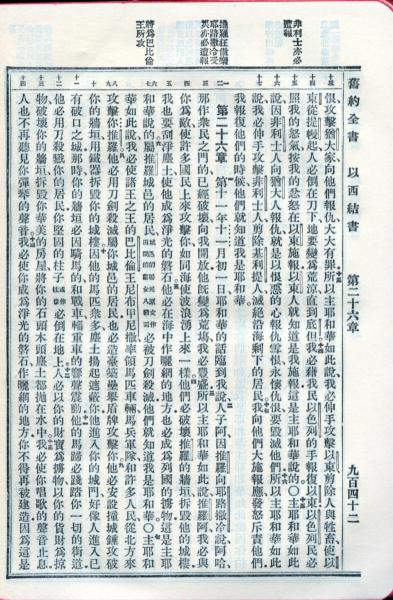 舊約全書　以西結書　第二十六章　九百四十二
非利士亦必遭報
將為巴比倫王所攻
恨攻擊猶大家向他們報仇大大有罪所以主耶和華如此說我必伸手攻擊以東剪除人與牲畜使以
東從提幔起人必倒在刀下地要變為荒涼直到底但我必藉我民以色列的手報復以東以色列民必
照我的怒氣按我的忿怒在以東施報以東人就知道是我施報這是主耶和華說的〇主耶和華如此
說因非利士人向猶大人報仇就是以恨惡的心報仇雪恨永懷仇恨要毀滅他們所以主耶和華如此
說我必伸手攻擊非利士人剪除基利提人滅絕沿海剩下的居民我向他們大施報應發怒斥責他們
我報復他們的時候他們就知道我是耶和華
第二十六章　第十一年十一月初一日耶和華的話臨到我說人子阿因推羅向耶路撒冷說阿哈
那作眾民之門的已經破壞向我開放他既變為荒場我必豐盛所以主耶和華如此說推羅阿我必與
你為敵使許多國民上來攻擊你如同海使波浪湧上來一樣他們必破壞推羅的牆垣拆毀他的城樓
我也要刮淨塵土使他成為淨光的磐石他必在海中作曬網的地方也必成為列國的擄物這是主耶
和華說的屬推羅城邑的居民必被刀劍殺滅他們就知道我是耶和華〇主耶和
華如此說我必使諸王之王的巴比倫王尼布甲尼撒率領馬匹車輛馬兵軍隊和許多人民從北方來
攻擊你推羅他必用刀劍殺滅屬你城邑的居民也必造臺築壘舉盾牌攻擊你他必安設撞城錘攻破
你的牆垣用鐵器拆毀你的城樓因他的馬匹眾多塵土揚起遮蔽你他進入你的城門好像人進入已
有破口之城那時你的牆垣必因騎馬的和戰車輜重車的響聲震動他的馬蹄必踐踏你一切的街道
他必用刀殺戮你的居民你堅固的柱子必倒在地上人必以你的財寶為擄物以你的貨財為掠
物破壞你的牆垣拆毀你華美的房屋將你的石頭木頭塵土都拋在水中我必使你唱歌的聲音止息
人也不再聽見你彈琴的聲音我必使你成為淨光的磐石作曬網的地方你不得再被建造因為這是